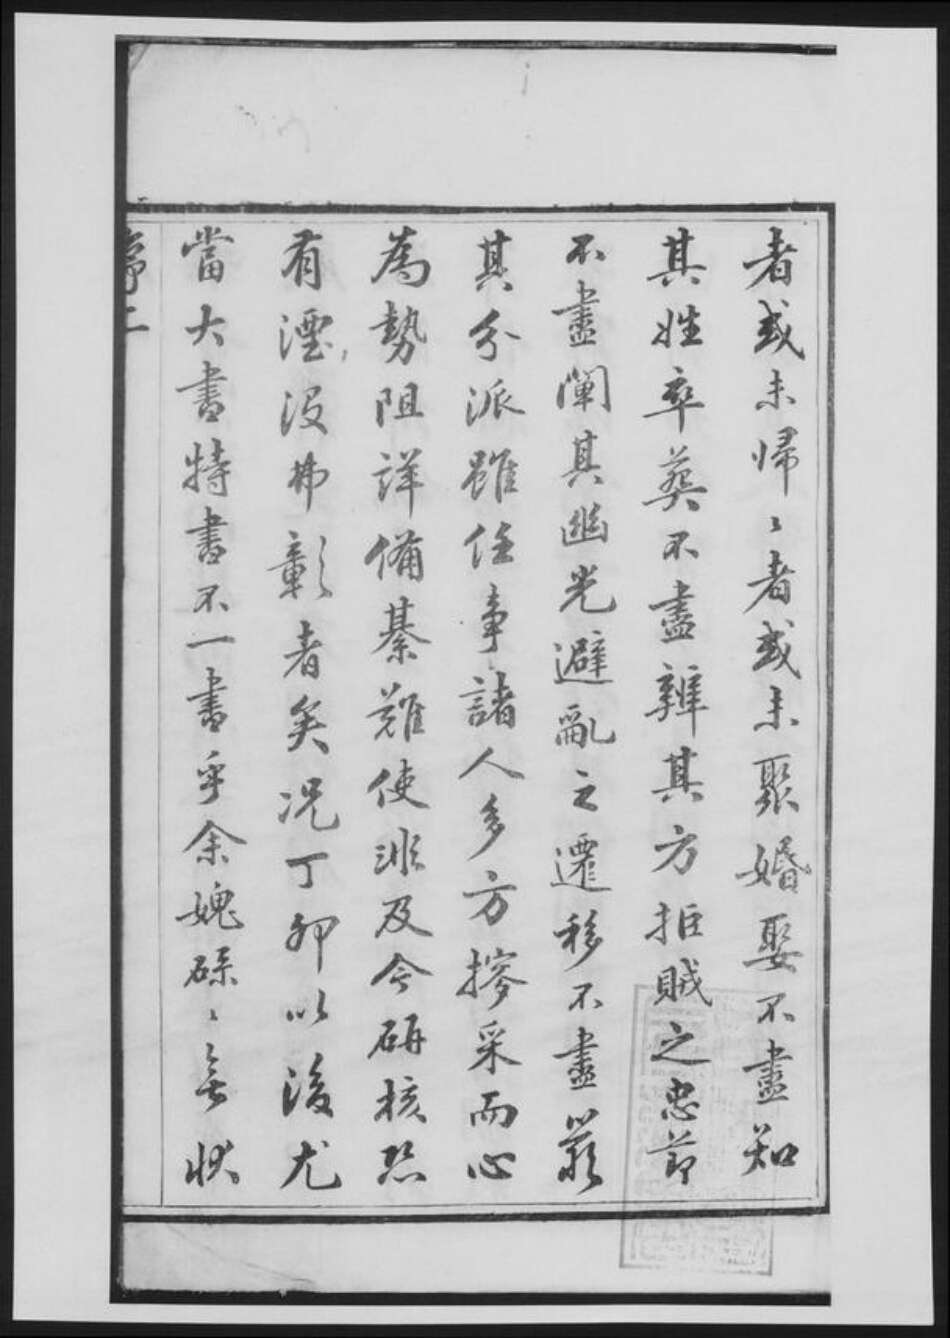 者或未歸〻者或未聚婚娶不盡知
其姓卒葬不盡辨其方拒賊之忠節
不盡闡其幽光避亂之遷移不盡叢
其分派雖任事諸人多方搜采而心
為勢阻詳備綦難使非及今研核恐
有湮没弗彰者矣况丁卯以後尤
當大書特書不一書乎余媿碌〻無狀
序二